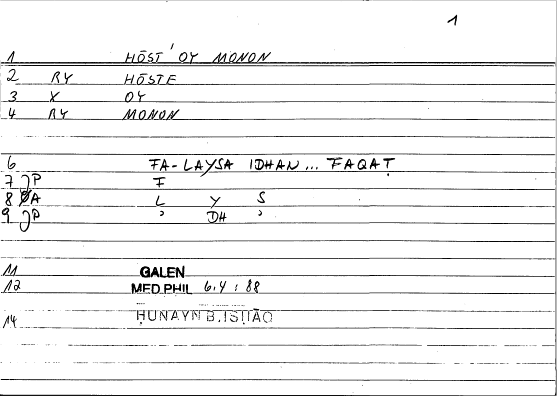 1
1 HŌST' OY MONON
2 RY HŌSTE
3 X OY
4 RY MONON
6 FA-LAYSA IDHAN... FAQAṬ
7 JP F
8 ØA L Y S
9 JP ' DH '
11 GALEN
12 MED.PHIL 6.4 : 88
14 ḤUNAYN B.ISḤĀQ